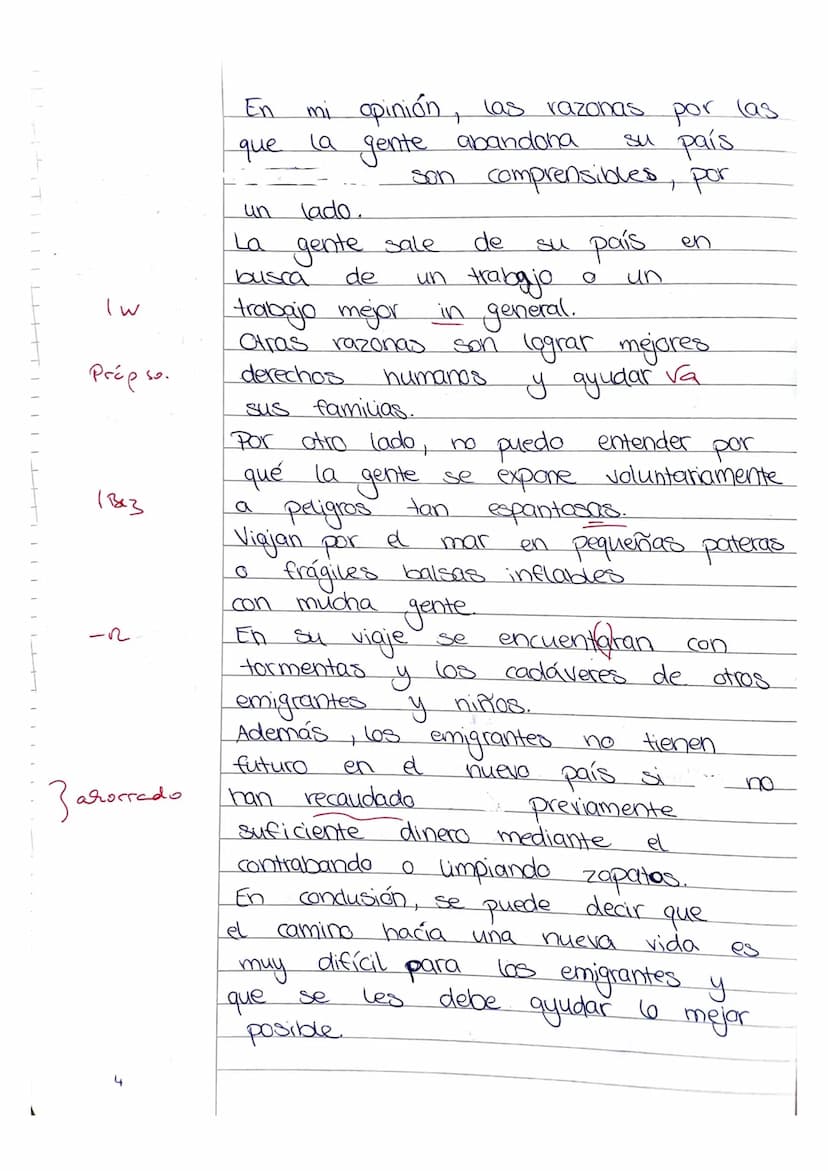 En mi opinión, las razonas por las
que la gente abandona su país
son comprensibles, por
un lado.
La gente sale de su país en
busca de un trabajo o un
1 w trabajo mejor in general.
Otras razonas son lograr mejores
Präp so. derechos humanos y ayudar √a
sus familias.
Por otro lado, no puedo entender por
qué la gente se expone voluntariamente
a peligros tan espantosas.
Viajan por el mar en pequeñas pateras
o frágiles balsas inflables
con mucha gente.
En su viaje se encuentaran con
tormentas y los cadáveres de otros
emigrantes y niños.
Además, los emigrantes no tienen
futuro en el nuevo país si no
ahorrado han recaudado previamente
suficiente dinero mediante el
contrabando o limpiando zapatos.
En conclusión, se puede decir que
el camino hacía una nueva vida es
muy difícil para los emigrantes y
que se les debe ayudar lo mejor
posible.
4